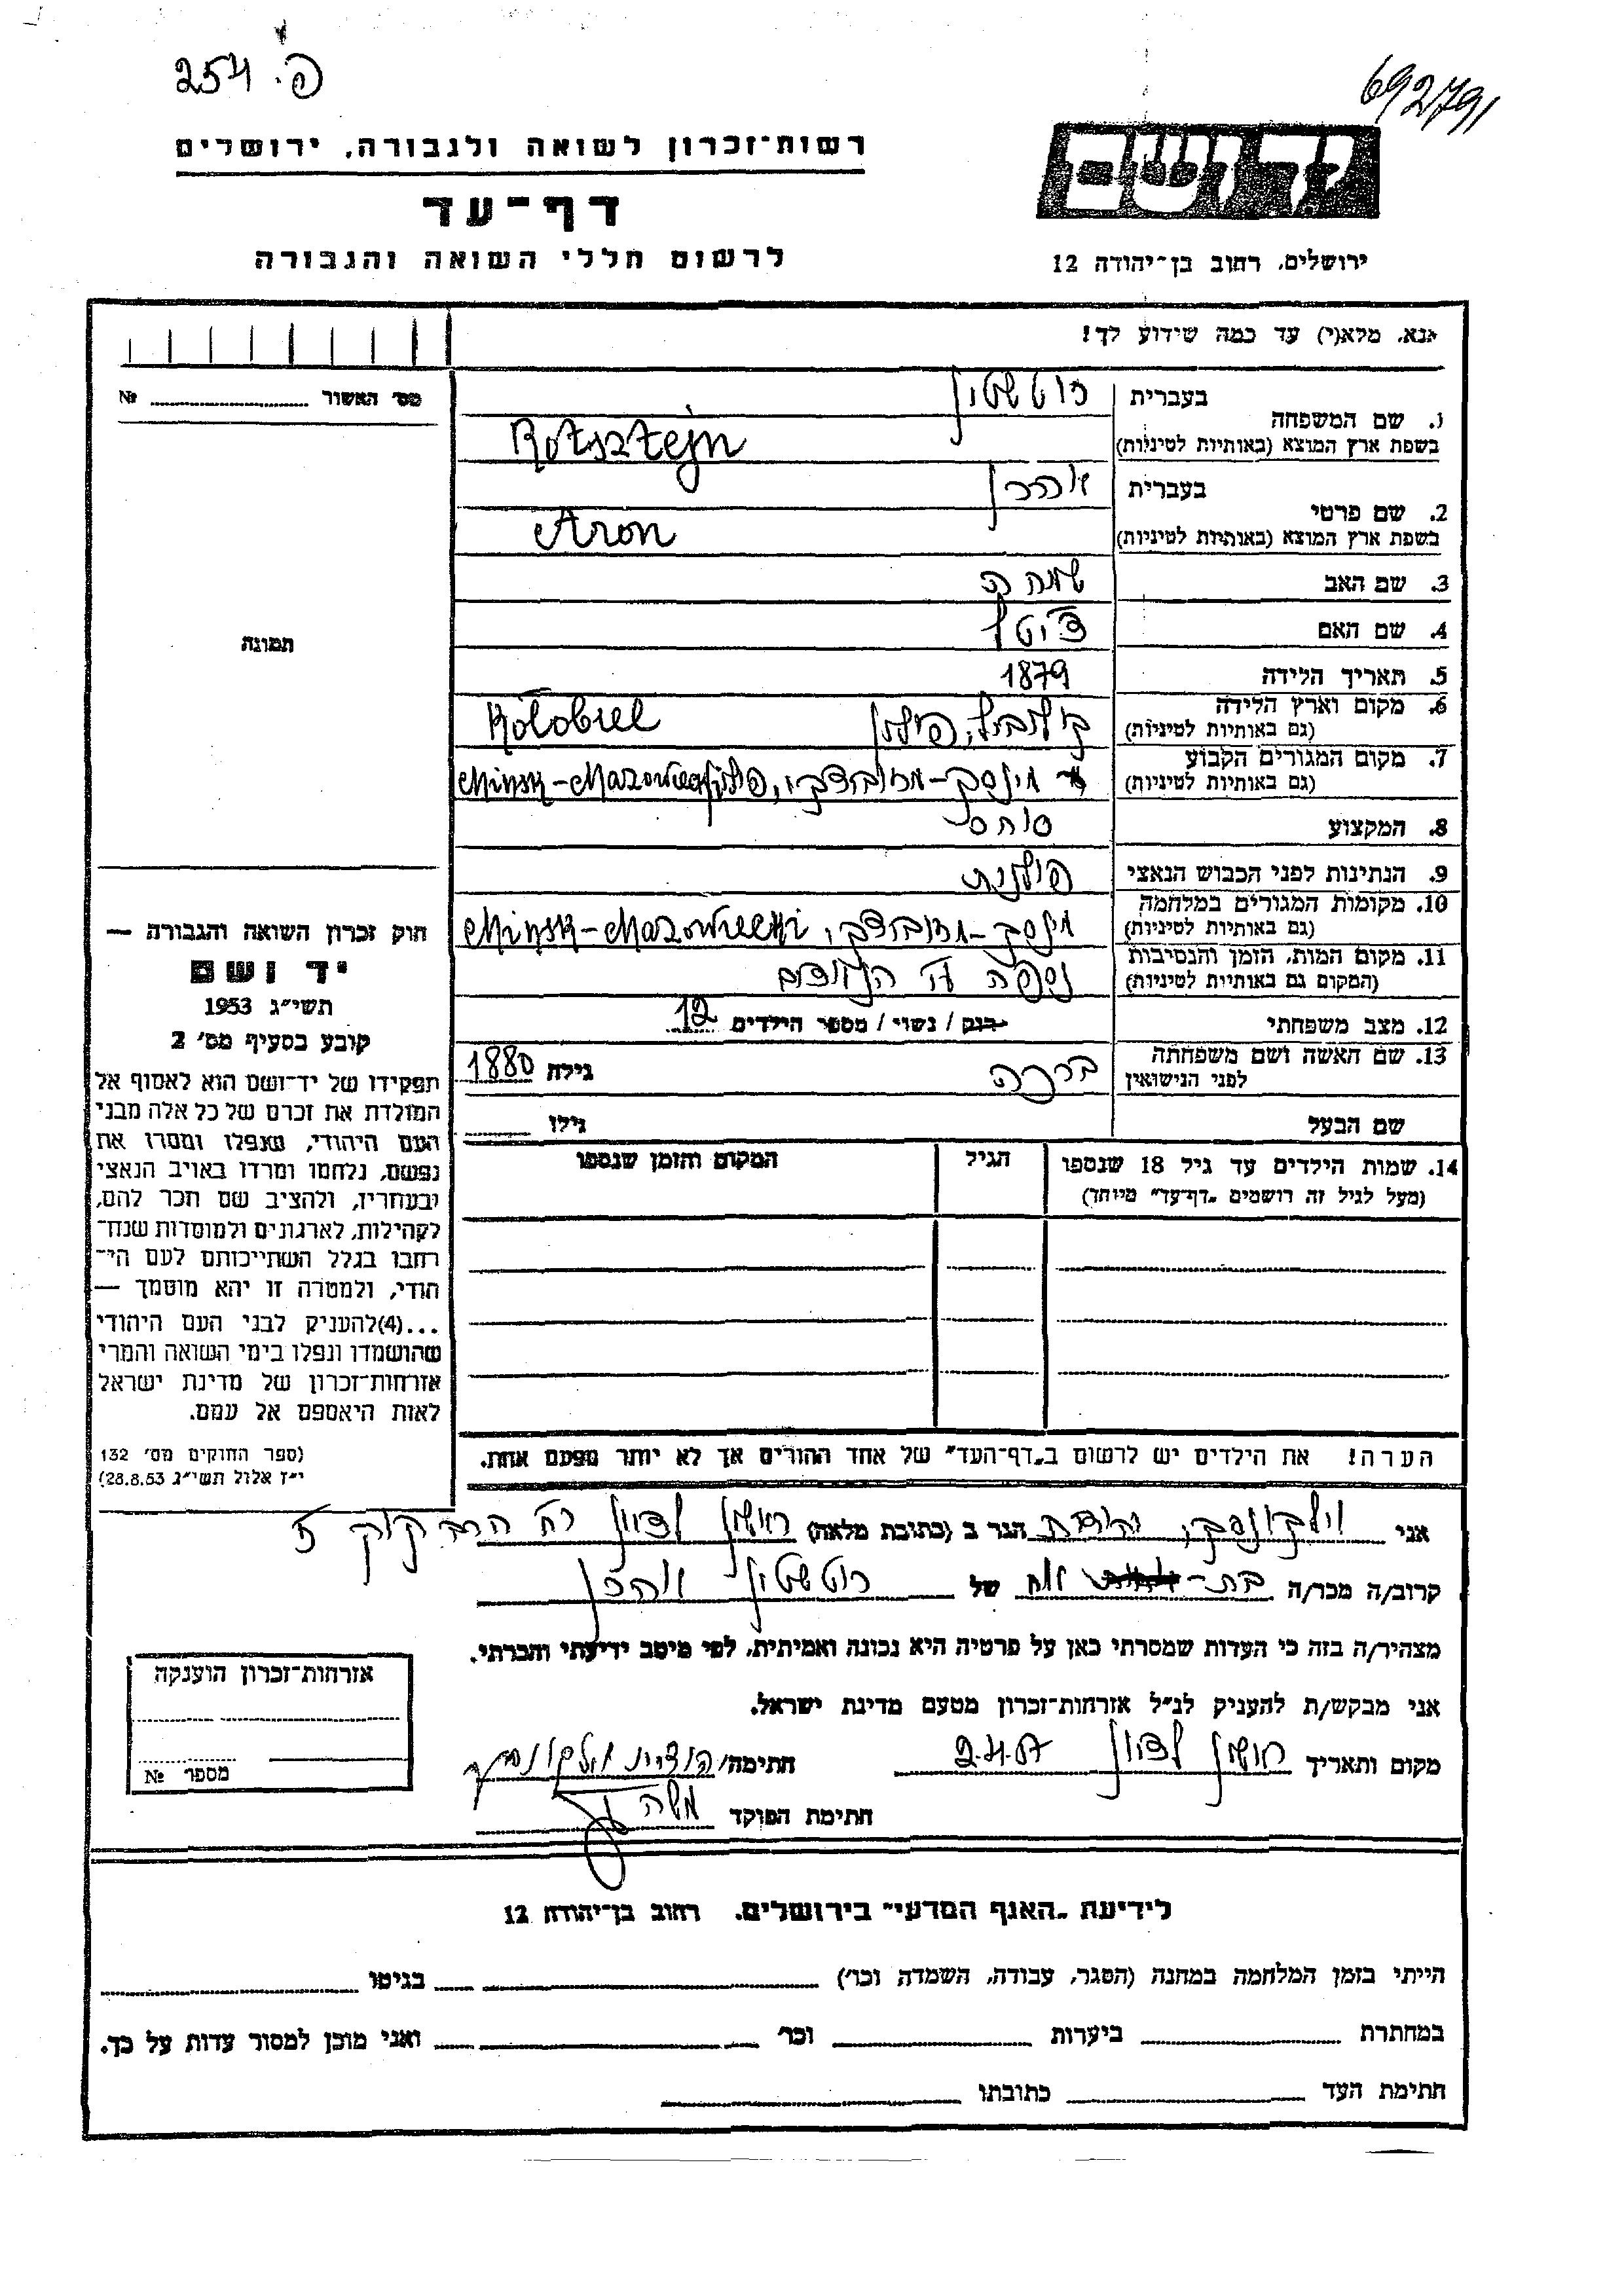 254 .פ
692791
רשות־זכרון לשואה ולגבורה, ירושלים
דף־עד
לרשום חללי השואה והגבורה
יד ושם
ירושלים, רחוב בן־יהודה 12
אנא, מלא(י) עד כמה שידוע לך!
מס׳ האשור № 
1. שם המשפחה
בעברית רוטשטיין
בשפת ארץ המוצא (באותיות לטיניות) Rotsztejn
2. שם פרטי
בעברית אהרן
בשפת ארץ המוצא (באותיות לטיניות) Aron
3. שם האב שמחה
4. שם האם
5. תאריך הלידה 1879
6. מקום וארץ הלידה
(גם באותיות לטיניות) קולוביל, פולין Kołobiel
7. מקום המגורים הקבוע
(גם באותיות לטיניות) מינסק-מזובצקי, Mińsk-Mazowiecki
8. המקצוע סוחר
9. הנתינות לפני הכבוש הנאצי פולנית
10. מקומות המגורים במלחמה
(גם באותיות לטיניות) מינסק-מזובצקי, Mińsk-Mazowiecki
11. מקום המות, הזמן והנסיבות
(המקום גם באותיות לטיניות) נספה
12. מצב משפחתי רווק / נשוי / מספר הילדים 12
13. שם האשה ושם משפחתה
לפני הנישואין ברכה גילה 1880
שם הבעל גילו
14. שמות הילדים עד גיל 18 שנספו
(מעל לגיל זה רושמים „דף־עד״ מיוחד)
הגיל
המקום והזמן שנספו
הערה! את הילדים יש לרשום ב„דף־העד״ של אחד ההורים אך לא יותר מפעם אחת.
תמונה
חוק זכרון השואה והגבורה —
יד ושם
תשי״ג 1953
קובע בסעיף מס׳ 2
תפקידו של יד־ושם הוא לאסוף אל
המולדת את זכרם של כל אלה מבני
העם היהודי, שנפלו ומסרו את
נפשם, נלחמו ומרדו באויב הנאצי
ובעוזריו, ולהציב שם וזכר להם,
לקהילות, לארגונים ולמוסדות שנח־
רבו בגלל השתייכותם לעם הי־
הודי, ולמטרה זו יהא מוסמך —
...(4)להעניק לבני העם היהודי
שהושמדו ונפלו בימי השואה והמרי
אזרחות־זכרון של מדינת ישראל
לאות היאספם אל עמם.
(ספר החוקים מס׳ 132
י״ז אלול תשי״ג 28.8.53)
אני הגר ב (כתובת מלאה) ראשון לציון רח הרב קוק 5
קרוב/ה מכר/ה בת-אח של רוטשטיין אהרן
מצהיר/ה בזה כי העדות שמסרתי כאן על פרטיה היא נכונה ואמיתית, לפי מיטב ידיעתי והכרתי.
אני מבקש/ת להעניק לנ״ל אזרחות־זכרון מטעם מדינת ישראל.
מקום ותאריך ראשון לציון חתימה
חתימת הפוקד משה
אזרחות־זכרון הוענקה
מספר №
לידיעת „האגף המדעי״ בירושלים, רחוב בן־יהודה 12
הייתי בזמן המלחמה במחנה (הסגר, עבודה, השמדה וכו׳) בגיטו
במחתרת ביערות וכו׳ ואני מוכן למסור עדות על כך.
חתימת העד כתובתו